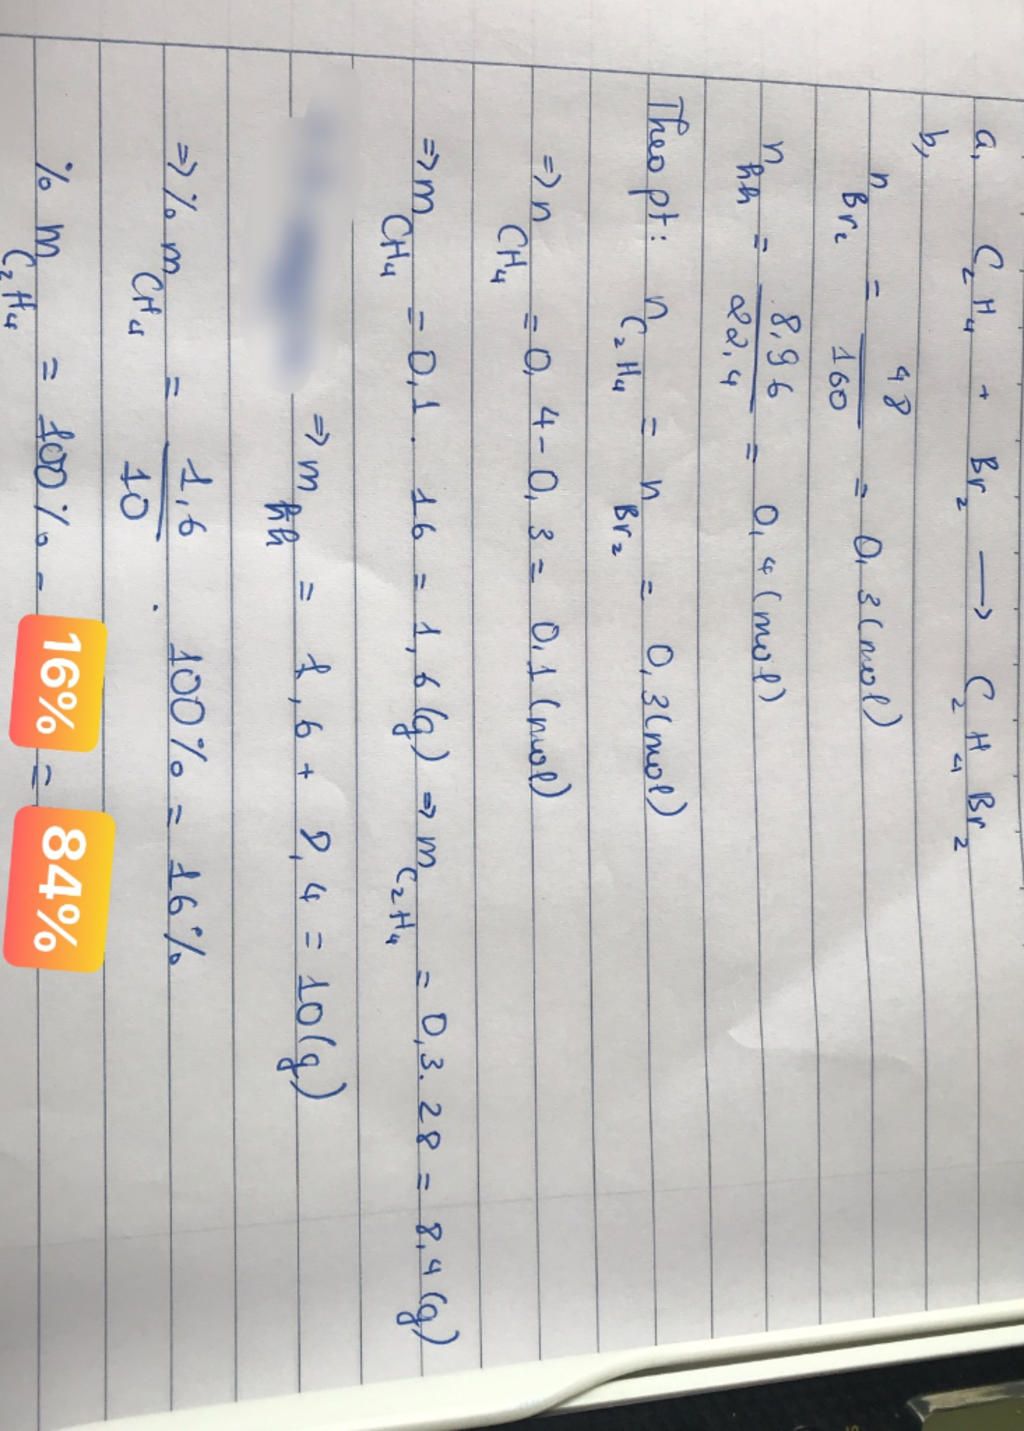 a, C₂H₄ + Br₂ ⟶ C₂H₄Br₂
b,
n Br₂ = 48/160 = 0,3 (mol)
n hh = 8,96/22,4 = 0,4 (mol)
Theo pt: n C₂H₄ = n Br₂ = 0,3 (mol)
=> n CH₄ = 0,4 - 0,3 = 0,1 (mol)
=> m CH₄ = 0,1 . 16 = 1,6 (g) => m C₂H₄ = 0,3 . 28 = 8,4 (g)
=> m hh = 1,6 + 8,4 = 10 (g)
=> % m CH₄ = 1,6/10 . 100% = 16%
% m C₂H₄ = 100% - 16% = 84%